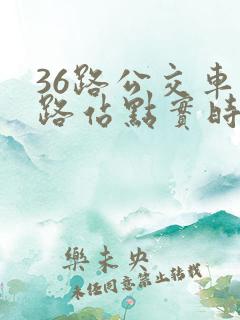 36路公交車
路佔點實時
樂未央
未經同意禁止轉載